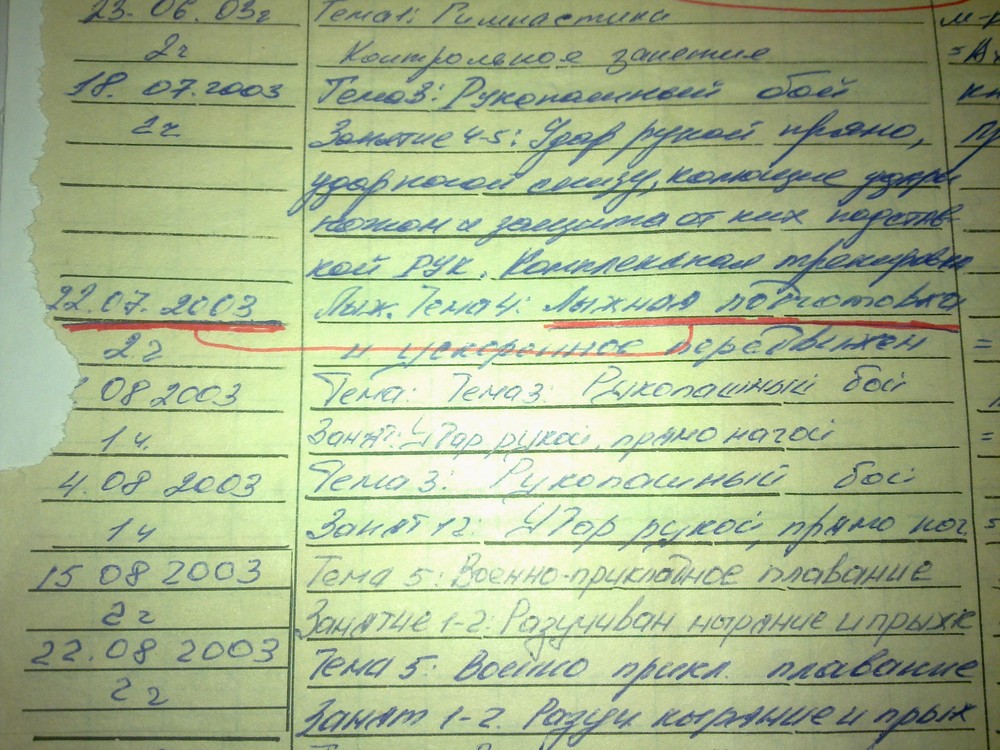 23.06.03г Тема1: Гимнастика
2ч Контрольное занятие
18.07.2003 Тема3: Рукопашный бой
2ч Занятие 4-5: Удар рукой прямо,
удар ногой снизу, колющие удары
ножом и защита от них подстав-
кой рук. Комплексная тренировка
22.07.2003 Лыж. Тема 4: Лыжная подготовка
2ч и ускоренное передвижен
08 2003 Тема: Тема3: Рукопашный бой
1ч. Занят: Удар рукой, прямо нагой
4.08 2003 Тема 3: Рукопашный бой
1ч Занят 12: Удар рукой, прямо ног
15 08 2003 Тема 5: Военно-прикладное плавание
2ч Занятие 1-2: Разучиван ныряние и прыжк
22.08 2003 Тема 5: Воено прикл. плавание
2ч Занят 1-2. Разуч ныряние и прыж